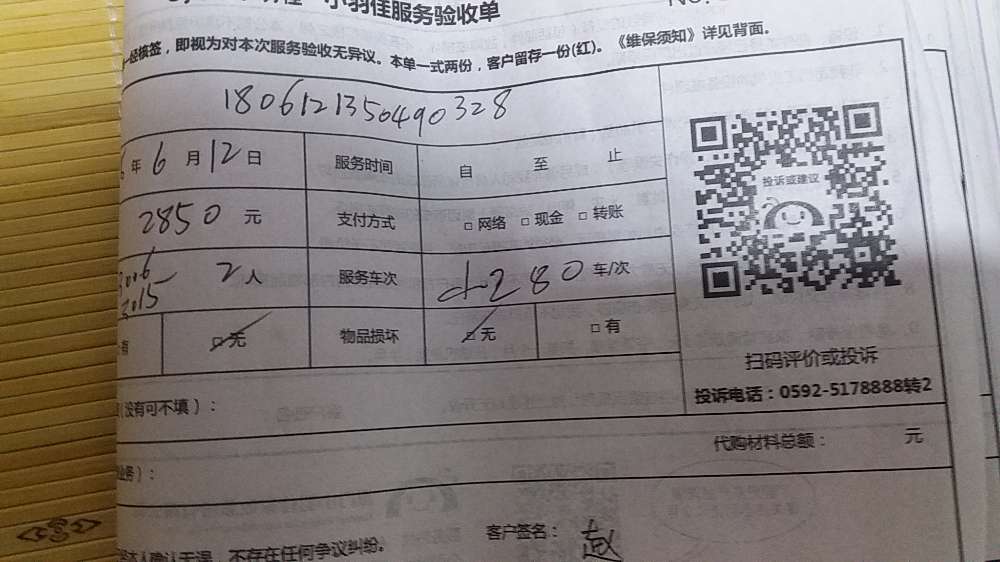 小羽佳服务验收单
No.
经核签，即视为对本次服务验收无异议。本单一式两份，客户留存一份(红)。《维保须知》详见背面。
180612135049 0328
年 6 月 12 日 服务时间 自 至 止
2850 元 支付方式 □ 网络 □ 现金 □ 转账
投诉或建议
2人 服务车次 小280 车/次
2015
有 □ 无 物品损坏 □ 无 □ 有
扫码评价或投诉
投诉电话：0592-5178888转2
(没有可不填)：
代购材料总额： 元
业务)：
客户签名： 赵
本人确认无误，不存在任何争议纠纷。